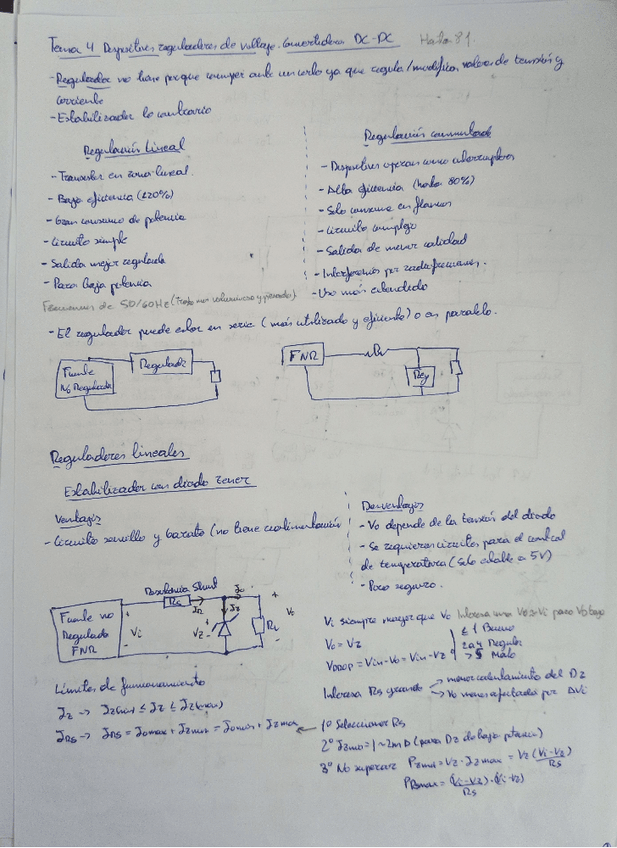 Tema 4 Dispositivos reguladores de voltaje. Convertidores DC-DC
Hasta 81.
- Regulador no tiene porque ante un ya que regula/modifica valores de tensión y
corriente
- Estabilizador lo contrario
Regulación Lineal
- Transistor en zona lineal.
- Baja eficiencia (<20%)
- Gran consumo de potencia
- Circuito simple
- Salida mejor regulada
- Para baja potencia
Fenomenos de 50/60Hz (trafo mas voluminoso y pesado)
Regulación conmutada
- Dispositivos operan como interruptores
- Alta eficiencia (hasta 80%)
- Solo consume en flancos
- Circuito complejo
- Salida de menor calidad
- Interferencias por radiofrecuencias.
- Uso más extendido
- El regulador puede estar en serie (más utilizado y eficiente) o en paralelo.
Fuente
No Regulada
Regulador
FNR
Reg
Reguladores lineales
Estabilizador con diodo zener
Ventajas
- Circuito sencillo y barato (no tiene realimentación
Desventajas
- Vo depende de la tensión del diodo
- Se requieren circuitos para el control
de temperatura (solo estable a 5V)
- Poco seguro.
Resistencia Shunt
Fuente no
Regulada
FNR
+
Vi
-
Rs
IR
Io
Iz
Vz
+
-
RL
+
Vo
-
Vi siempre mayor que Vo Interesa una Vo≃Vi para VD bajo
Vo = Vz
VDROP = Vin-Vo = Vin-Vz
≤ 1 Bueno
2a4 Regular
> 5 Malo
Interesa Rs grande → menor calentamiento del Dz
→ Vo menos afectada por ΔVi
Límites de funcionamiento
Iz → Iz(min) ≤ Iz ≤ Iz(max)
IRs → IRs = Iomax + Izmin = Iomin + Izmax
1º Seleccionar Rs
2º Izmin = 1~2mA (para Dz de baja potencia)
3º No superar Pzmax = Vz · Izmax = Vz (Vi-Vz)/Rs
PRsmax = (Vi-Vz)/Rs · (Vi-Vz)